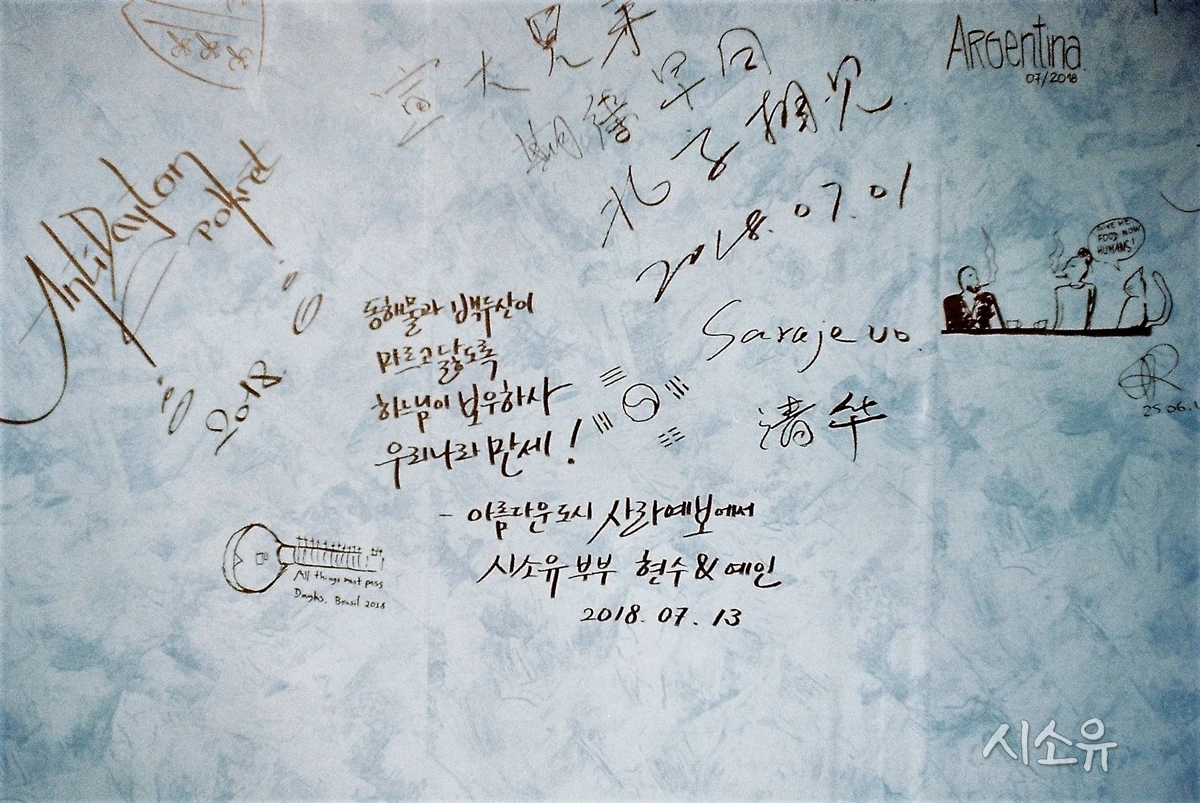 宣大兄弟
期待早回
北京相见
2018.07.01
Sarajevo
清华
ARGentina
07/2018
Dayton
2018.
GIVE ME
FOOD NOW
HUMANS!
25.06.
동해물과 백두산이
마르고 닳도록
하느님이 보우하사
우리나라 만세!
- 아름다운 도시 사라예보에서
시소유 부부 현수 & 예인
2018. 07. 13
All things must pass
Brasil 2018
시소유